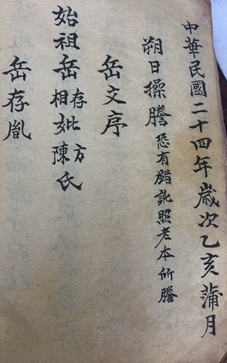 中華民國二十四年歲次乙亥蒲月
朔日操謄恐有錯訛照老本所謄
岳文序
始祖岳存方
相妣陳氏
岳存胤